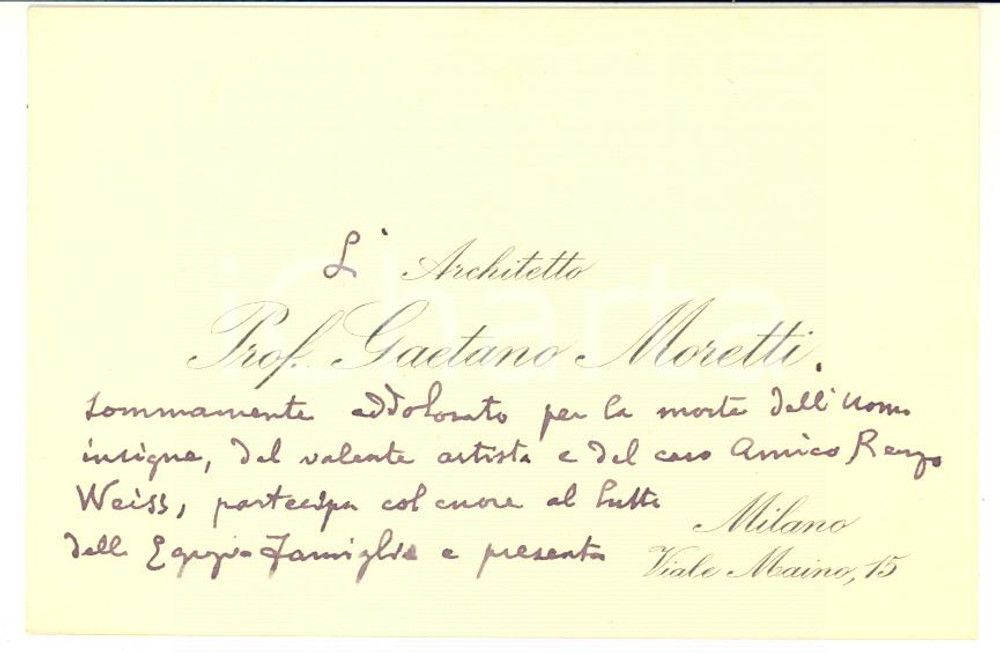 L' Architetto
Prof. Gaetano Moretti.
sommamente addolorato per la morte dell'uomo
insigne, del valente artista e del caro Amico Renzo
Weiss, partecipa col cuore al lutto
della Egregia famiglia e presenta
Milano
Viale Maino, 15
iCharta